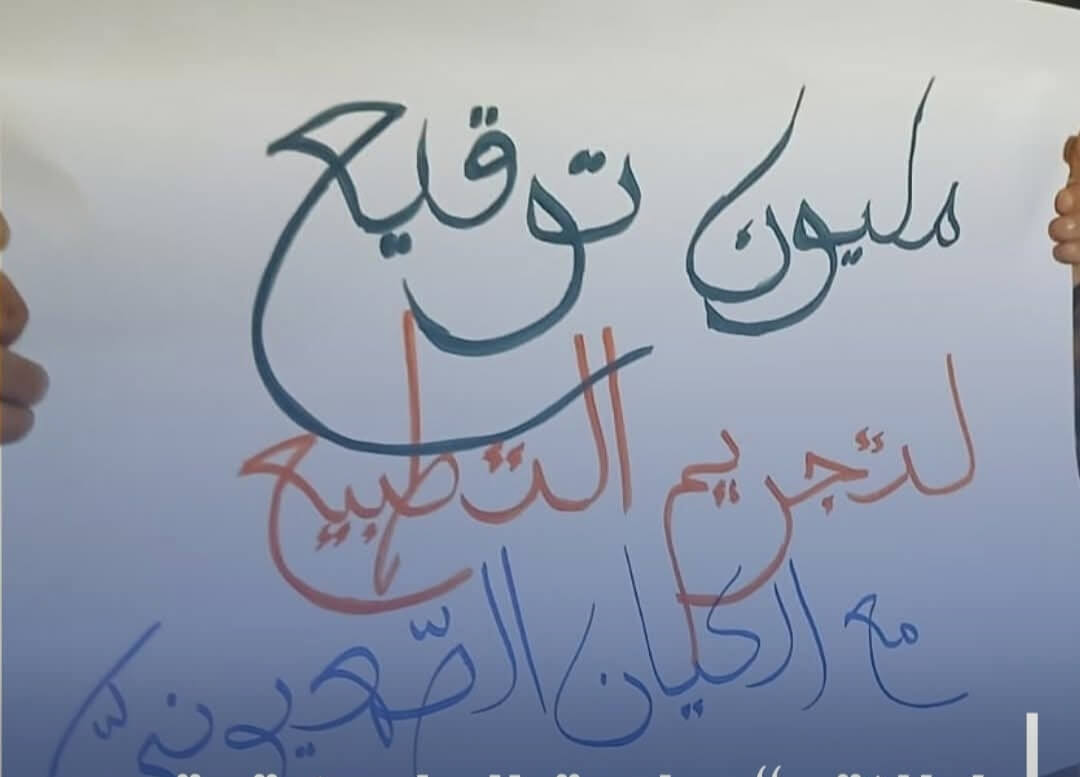 مليون توقيع
لتجريم التّطبيع
مع الكيان الصّهيونيّ